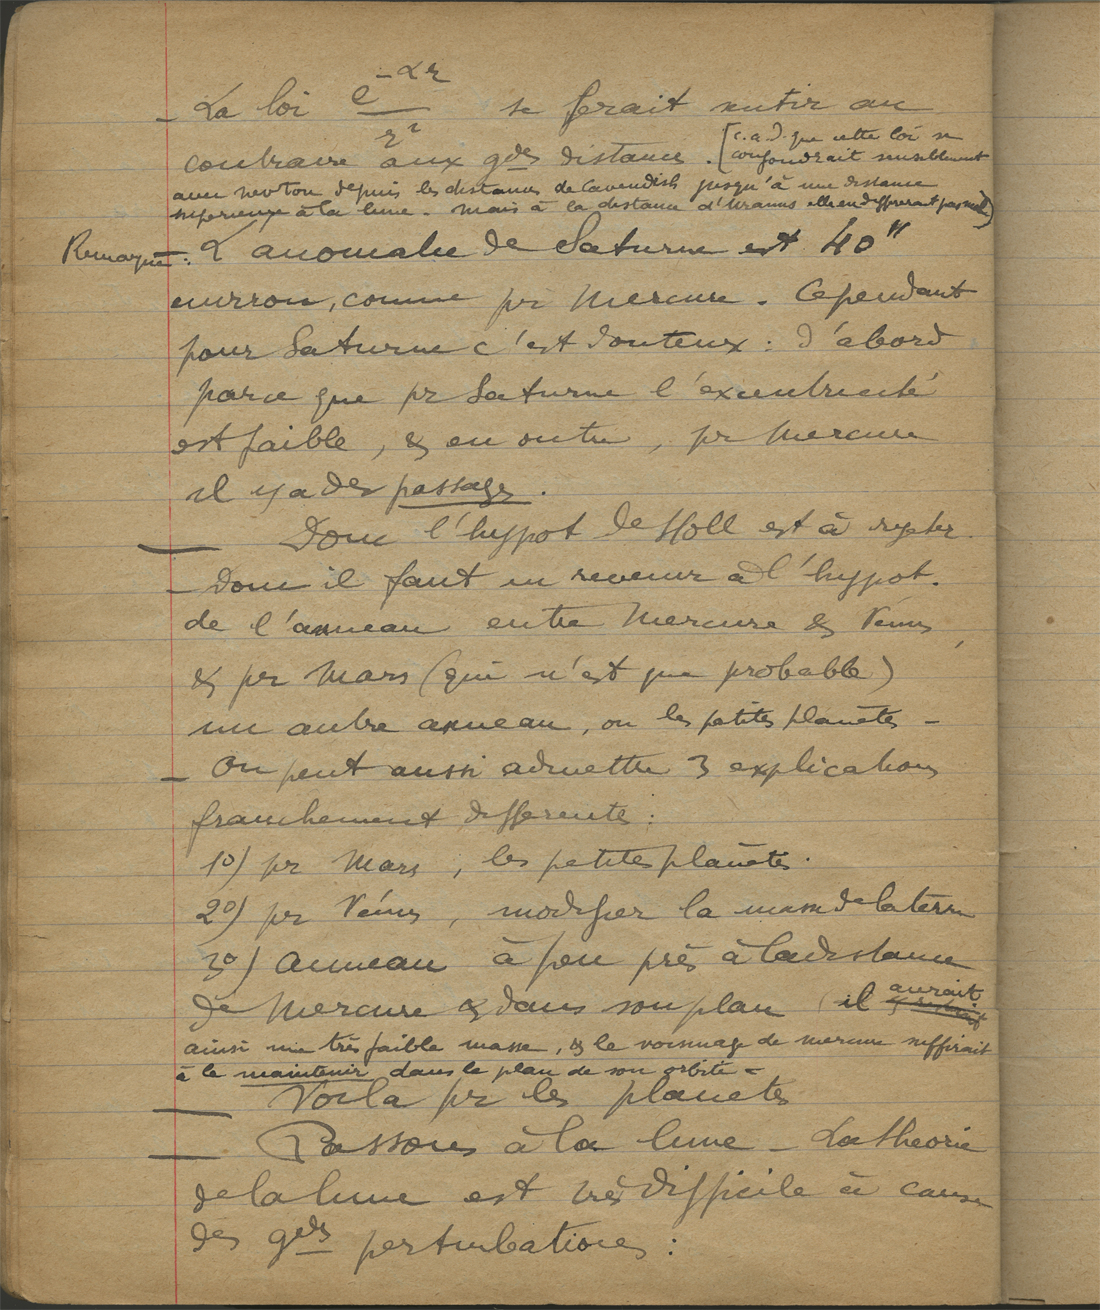 – La loi e^{-αr}/r² se ferait sentir au
contraire aux gdes distances. [c.a.d. que cette loi se
confondrait sensiblement
avec Newton depuis les distances de Cavendish jusqu'à une distance
supérieure à la lune. Mais à la distance d'Uranus elle en diffèrerait pas mal)
Remarque : – L'anomalie de Saturne est 40"
environ, comme pr Mercure. Cependant
pour Saturne c'est douteux : d'abord
parce que pr Saturne l'excentricité
est faible, & en outre, pr Mercure
il y a des passages.
— Donc l'hypot de Holl est à rejeter.
– Donc il faut en revenir à l'hypot.
de l'anneau entre Mercure & Vénus,
& pr Mars (qui n'est que probable)
un autre anneau, ou les petites planètes –
– On peut aussi admettre 3 explications
franchement différentes :
1o) pr Mars, les petites planètes.
2o) pr Vénus, modifier la masse de la terre
3o) Anneau à peu près à la distance
de Mercure & dans son plan (il aurait
ainsi une très faible masse, & le voisinage de Mercure suffirait
à le maintenir dans le plan de son orbite –
— Voilà pr les planètes
— Passons à la lune – La théorie
de la lune est très difficile à cause
des gdes perturbations :